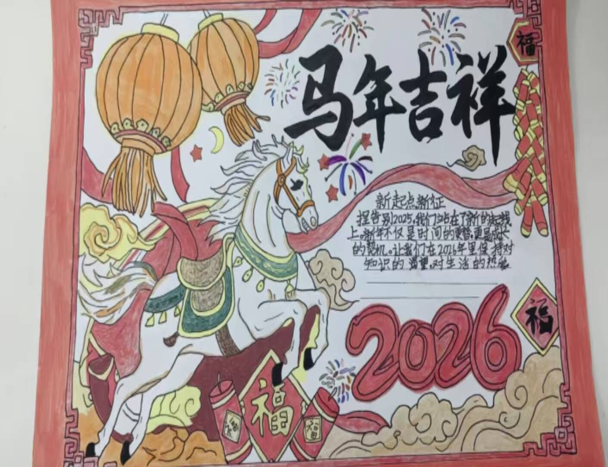 马年吉祥
福
新起点,新征
告别2025,我们站在了新的起跑线
上。新年不仅是时间的更替,更是成长
的契机。让我们在2026年里保持对
知识的渴望,对生活的热爱
2026
福
福
福
福